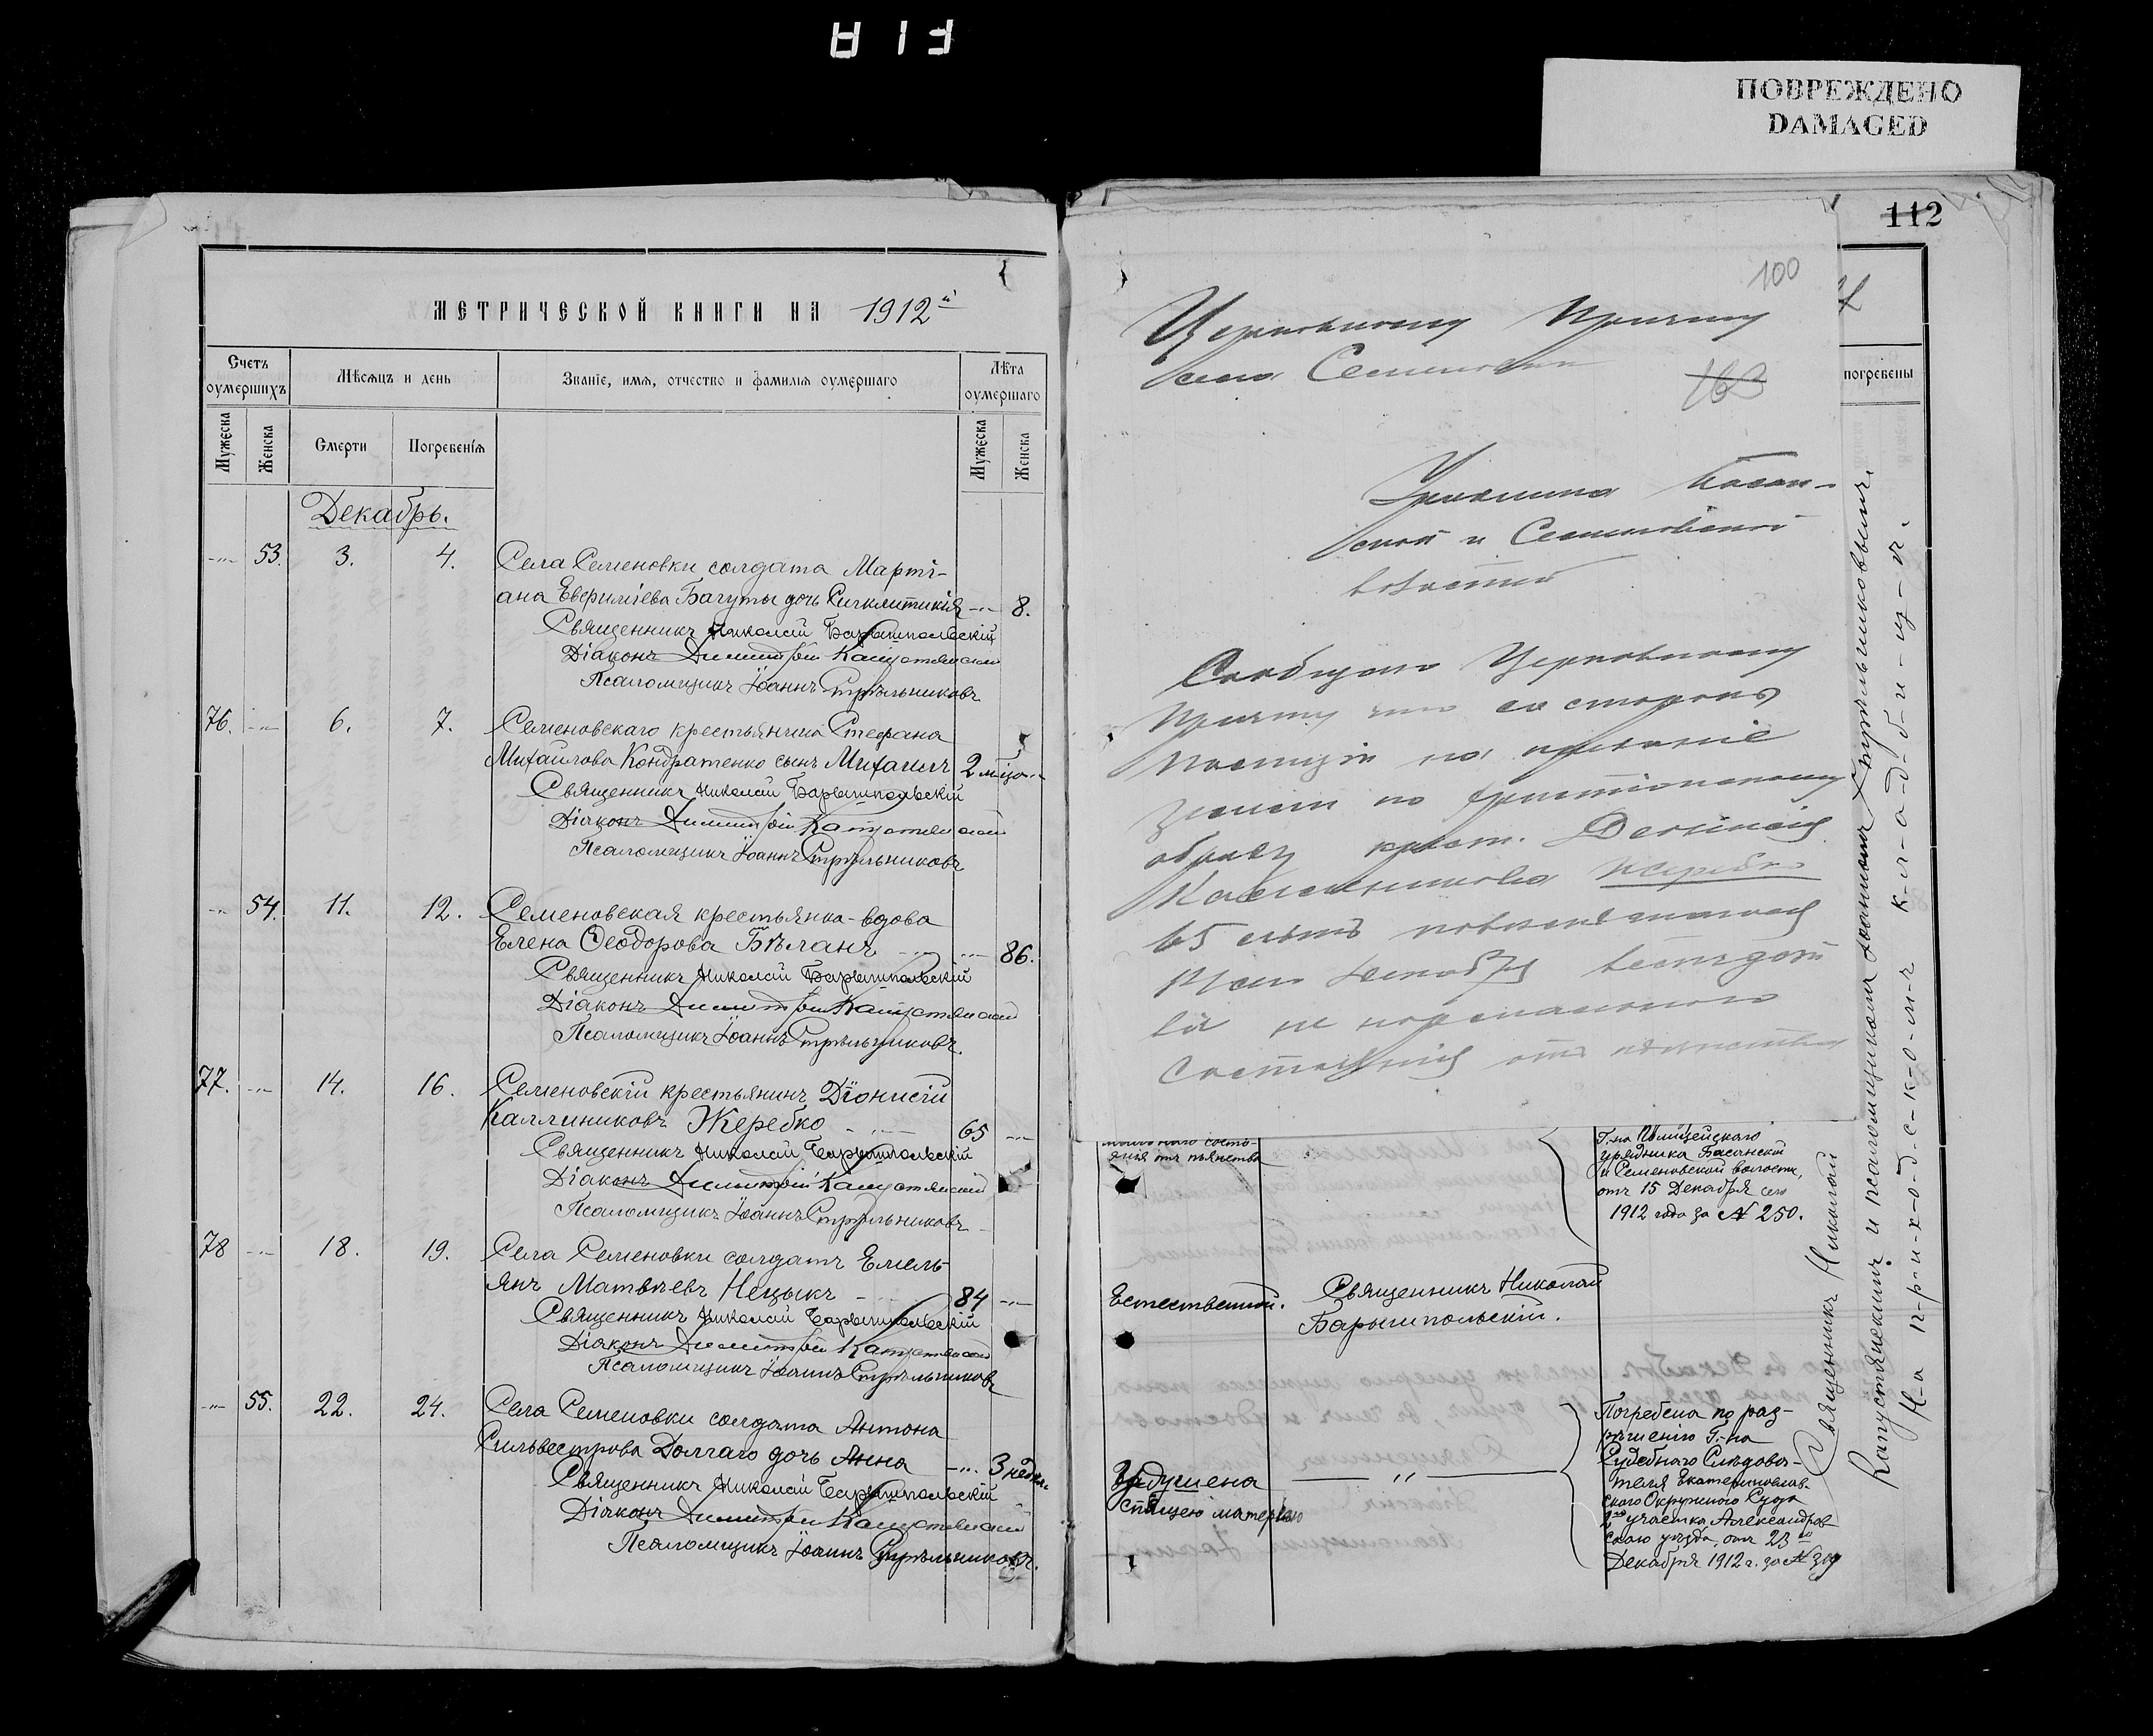 ПОВРЕЖДЕНО
DAMAGED
112
МЕТРИЧЕСКОЙ КНИГИ НА 1912й
Счетъ оумершихъ
Мѣсяцъ и день
Званіе, имя, отчество и фамилія оумершаго
Лѣта оумершаго
Мужеска
Женска
Смерти
Погребенія
Мужеска
Женска
Декабрь.
-"- 53. 3. 4. Села Семеновки солдата Марті-
ана Евфиміева Багуты дочь Синклитикія -"- 8.
Священникъ Николай Барышпольскій
Діаконъ Димитрій Капустянскій
Псаломщикъ Іоаннъ Стрѣльниковъ
76. -"- 6. 7. Семеновскаго крестьянина Стефана
Михайлова Кондратенко сынъ Михаилъ 2 мѣся. -"-
Священникъ Николай Барышпольскій
Діаконъ Димитрій Капустянскій
Псаломщикъ Іоаннъ Стрѣльниковъ
-"- 54. 11. 12. Семеновская крестьянка-вдова
Елена Ѳеодорова Бѣланъ -"- 86.
Священникъ Николай Барышпольскій
Діаконъ Димитрій Капустянскій
Псаломщикъ Іоаннъ Стрѣльниковъ.
77. -"- 14. 16. Семеновскій крестьянинъ Діонисій
Каллиниковъ Жеребко 65 -"-
Священникъ Николай Барышпольскій
Діаконъ Димитрій Капустянскій
Псаломщикъ Іоаннъ Стрѣльниковъ
78 -"- 18. 19. Села Семеновки солдатъ Емель-
янъ Матвѣевъ Нецыкъ 84 -"-
Священникъ Николай Барышпольскій
Діаконъ Димитрій Капустянскій
Псаломщикъ Іоаннъ Стрѣльниковъ
-"- 55. 22. 24. Села Семеновки солдата Антона
Сильвестрова Долгаго дочь Анна -"- 3 недѣл.
Священникъ Николай Барышпольскій
Діаконъ Димитрій Капустянскій
Псаломщикъ Іоаннъ Стрѣльниковъ.
100
Церковному Причту
села Семеновки
163
Урядника Басан-
ской и Семеновской
волостей
Сообщаю Церковному
Причту что со стороны
Полиціи на преданіе
землѣ по христіанскому
обряду крест. Деонисія
Каллиникова Жеребко
65 лѣтъ
Декабря
не нормальнаго
состоянія отъ пьянства
погребены
янія отъ пьянства
Г-на Полицейскаго
урядника Басанской
и Семеновской волости,
отъ 15 Декабря сего
1912 года за № 250.
Естественной.
Священникъ Николай
Барышпольскій.
Задушена
спящею матерью
-"-
Погребена по раз-
рѣшенію Г-на
Судебнаго Слѣдова-
теля Екатеринослав-
скаго Окружного Суда
2го участка Александров-
скаго уѣзда, отъ 23го
Декабря 1912 г. за №
Священникъ Николай
Капустянскимъ и псаломщикомъ Іоанномъ Стрѣльниковымъ.
На п-р-и-х-о-д-с-к-о-м-ъ к-л-а-д-б-и-щ-ѣ.